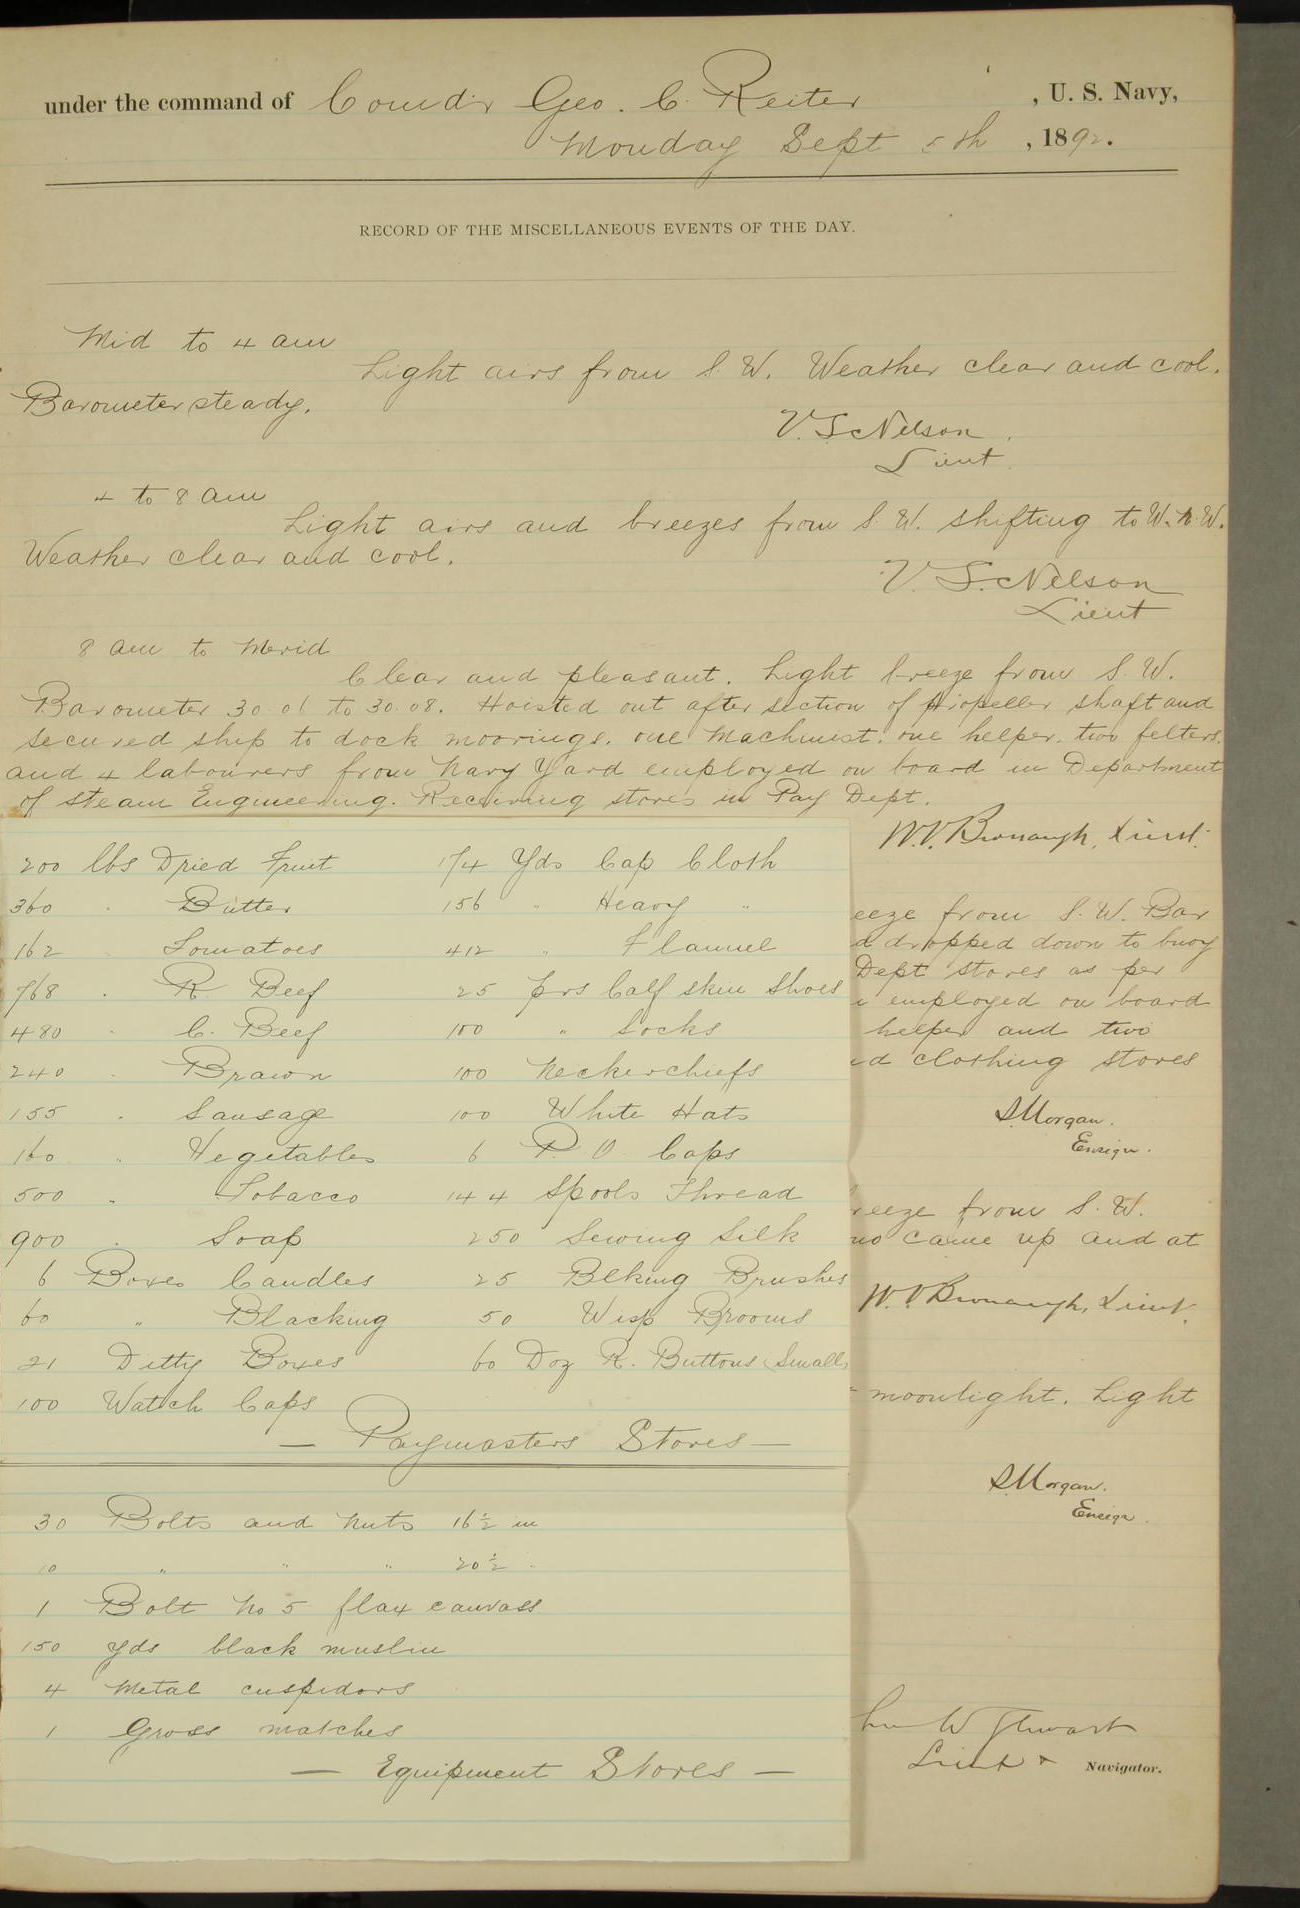 under the command of Comd'r Geo. C. Reiter, U. S. Navy,
Monday Sept 5th, 1892.
RECORD OF THE MISCELLANEOUS EVENTS OF THE DAY.
Mid to 4 am
Light airs from S. W. Weather clear and cool.
Barometer steady.
V. S. Nelson
Lieut.
4 to 8 am
Light airs and breezes from S. W. shifting to W. N. W.
Weather clear and cool.
V. S. Nelson
Lieut
8 am to Merid
Clear and pleasant. Light breeze from S. W.
Barometer 30.01 to 30.08. Hoisted out after section of propeller shaft and
secured ship to dock moorings. one Machinist. one helper. two felters.
and 4 labourers from Navy Yard employed on board in Department
of Steam Engineering. Receiving stores in Pay Dept.
W. V. Bronaugh, Lieut.
200 lbs Dried Fruit
360 " Butter
162 " Tomatoes
768 " R. Beef
480 " C. Beef
240 " Brawn
155 " Sausage
160 " Vegetables
500 " Tobacco
900 " Soap
6 Boxes Candles
60 " Blacking
21 Ditty Boxes
100 Watch Caps
174 Yds Cap Cloth
156 " Heavy "
412 " Flannel
25 prs Calf skin Shoes
100 " Socks
100 Neckerchiefs
100 White Hats
6 P. O. Caps
144 Spools Thread
250 Sewing Silk
25 Blking Brushes
50 Wisp Brooms
60 Doz R. Buttons (Small)
— Paymasters Stores —
30 Bolts and Nuts 16 1/2 in
10 " " " 20 1/2 "
1 Bolt No 5 flax canvass
150 yds black muslin
4 Metal cuspidors
1 Gross matches
— Equipment Stores —
eeze from S. W. Bar
d dropped down to buoy
Dept stores as per
employed on board
helper and two
ed clothing stores
S. Morgan.
Ensign.
reeze from S. W.
no came up and at
W. V. Bronaugh, Lieut.
moonlight. Light
S. Morgan.
Ensign.
W Stewart
Lieut & Navigator.